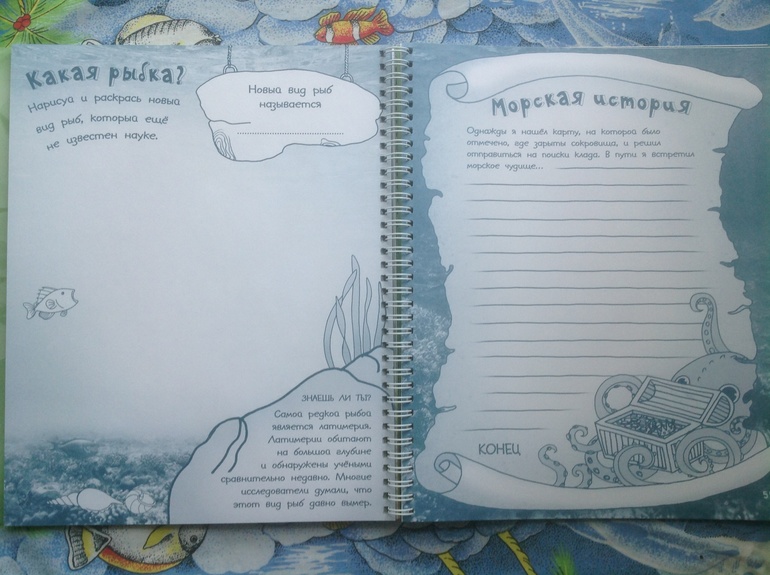 Какая рыбка?
Нарисуй и раскрась новый
вид рыб, который ещё
не известен науке.
Новый вид рыб
называется
ЗНАЕШЬ ЛИ ТЫ?
Самой редкой рыбой
является латимерия.
Латимерии обитают
на большой глубине
и обнаружены учёными
сравнительно недавно. Многие
исследователи думали, что
этот вид рыб давно вымер.
Морская история
Однажды я нашёл карту, на которой было
отмечено, где зарыты сокровища, и решил
отправиться на поиски клада. В пути я встретил
морское чудище...
КОНЕЦ
5